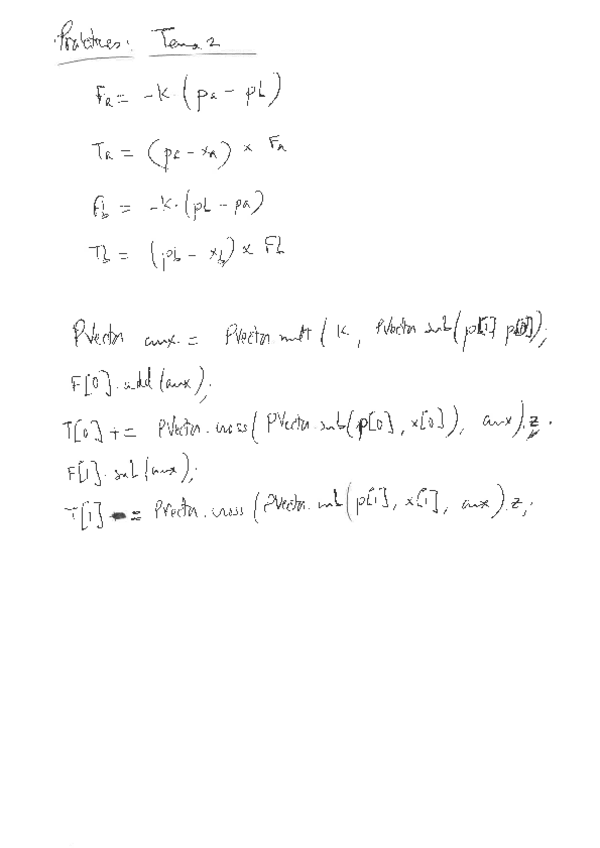 Prácticas: Tema 2
Fa = -k·(pa - pb)
Ta = (pa - xa) × Fa
Fb = -k·(pb - pa)
Tb = (pb - xb) × Fb
PVector aux = PVector mult(k, PVector sub(p[1] p[0]);
F[0].add(aux);
T[0] += PVector.cross(PVector.sub(p[0], x[0]), aux).z.
F[1].sub(aux);
T[1] -= PVector.cross(PVector.sub(p[1], x[1], aux).z;